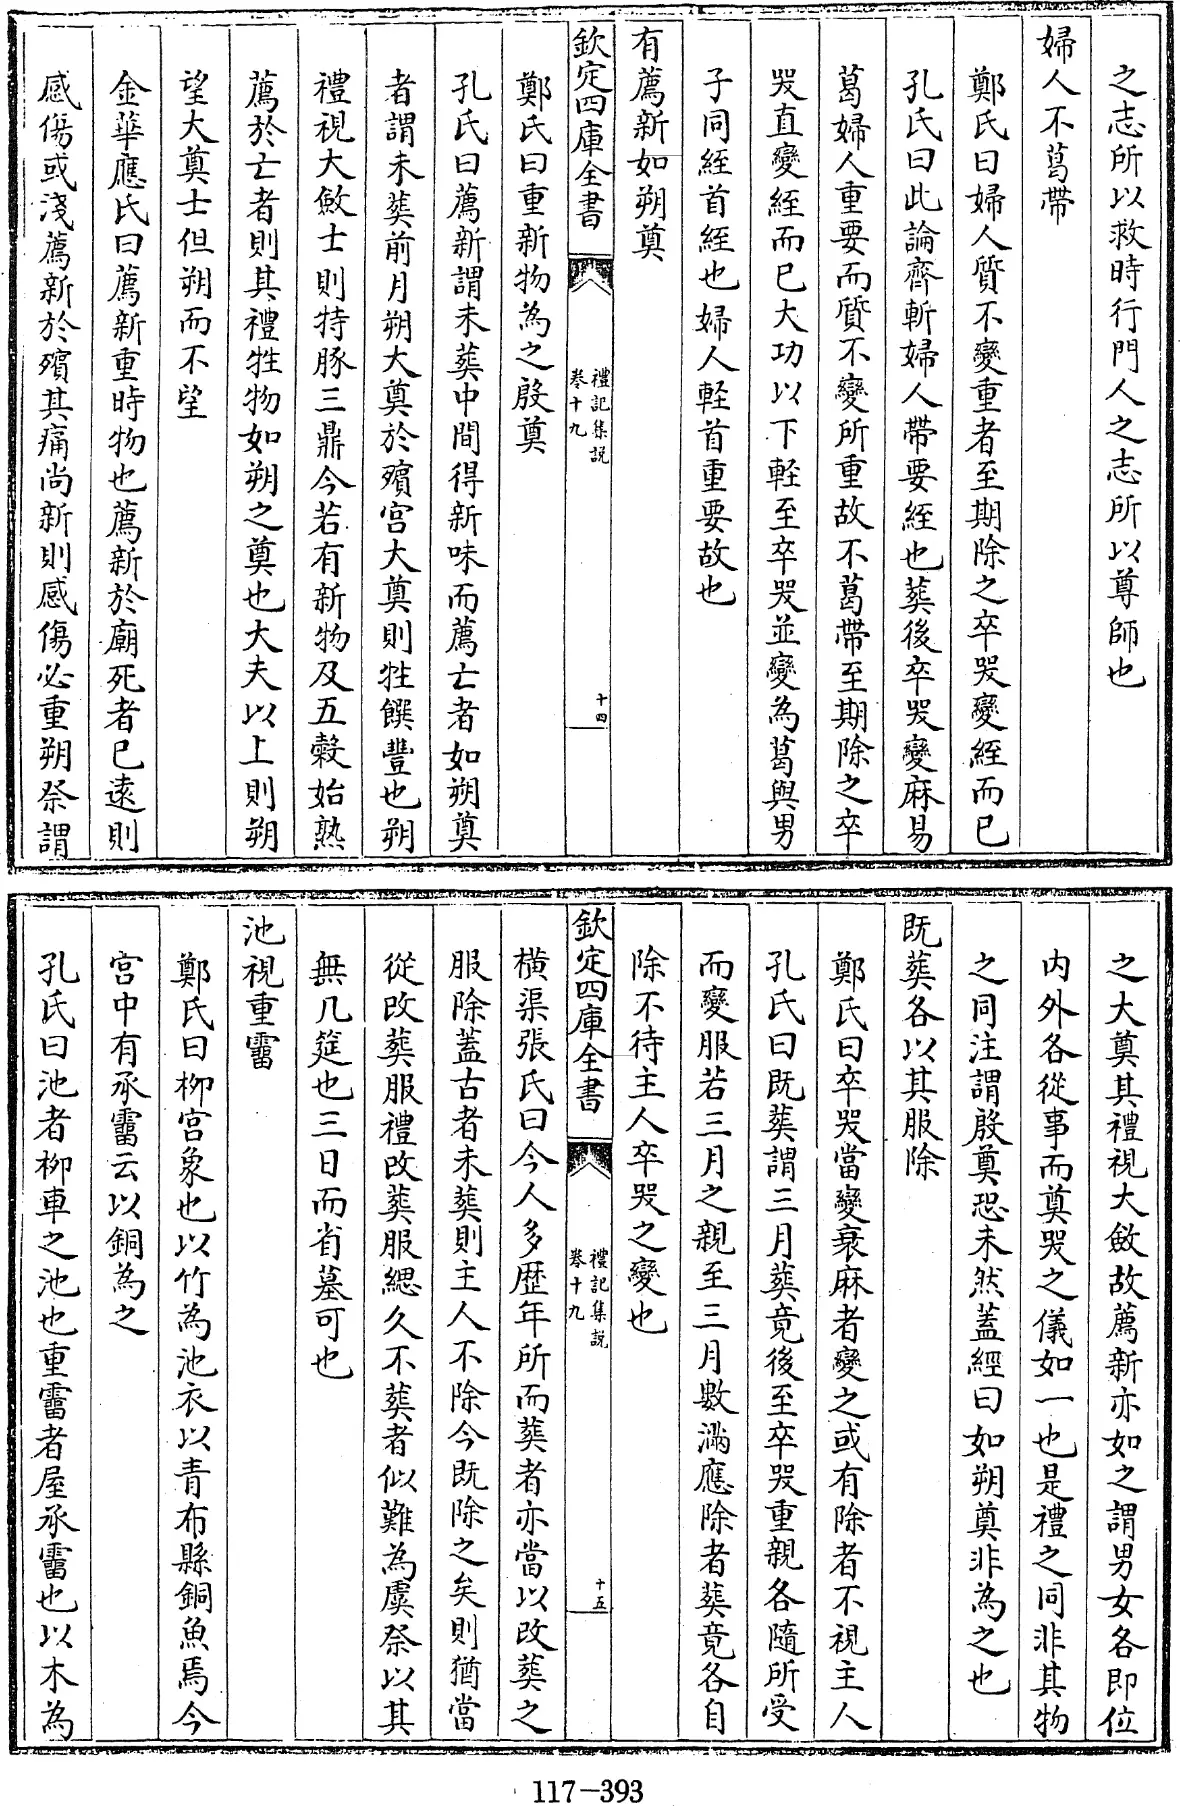 之志所以救時行門人之志所以尊師也
婦人不葛帶
鄭氏曰婦人質不變重者至期除之卒哭變絰而已
孔氏曰此論齊斬婦人帶要絰也葬後卒哭變麻易
葛婦人重要而質不變所重故不葛帶至期除之卒
哭直變絰而已大功以下輕至卒哭並變為葛與男
子同絰首絰也婦人輕首重要故也
有薦新如朔奠
欽定四庫全書
禮記集説
卷十九
十四
鄭氏曰重新物為之殷奠
孔氏曰薦新謂未葬中間得新味而薦亡者如朔奠
者謂未葬前月朔大奠於殯宮大奠則牲饌豐也朔
禮視大斂士則特豚三鼎今若有新物及五穀始熟
薦於亡者則其禮牲物如朔之奠也大夫以上則朔
望大奠士但朔而不望
金華應氏曰薦新重時物也薦新於廟死者已遠則
感傷或淺薦新於殯其痛尚新則感傷必重朔祭謂
之大奠其禮視大斂故薦新亦如之謂男女各即位
内外各從事而奠哭之儀如一也是禮之同非其物
之同注謂殷奠恐未然蓋經曰如朔奠非為之也
既葬各以其服除
鄭氏曰卒哭當變衰麻者變之或有除者不視主人
孔氏曰既葬謂三月葬竟後至卒哭重親各隨所受
而變服若三月之親至三月數滿應除者葬竟各自
除不待主人卒哭之變也
欽定四庫全書
禮記集説
卷十九
十五
橫渠張氏曰今人多歷年所而葬者亦當以改葬之
服除蓋古者未葬則主人不除今既除之矣則猶當
從改葬服禮改葬服緦久不葬者似難為虞祭以其
無几筵也三日而省墓可也
池視重霤
鄭氏曰柳宮象也以竹為池衣以青布縣銅魚焉今
宮中有承霤云以銅為之
孔氏曰池者柳車之池也重霤者屋承霤也以木為
117-393